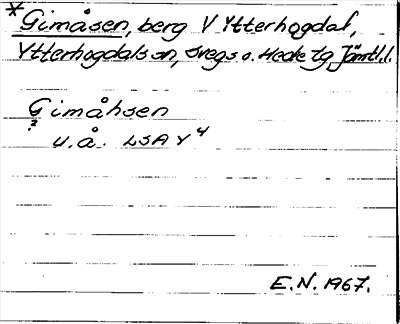 *Gimåsen, berg V Ytterhogdal,
Ytterhogdals sn, Svegs o. Hede tg Jämtl.l.
Gimåhsen
?
u.å. LSA Y4
E.N. 1967.